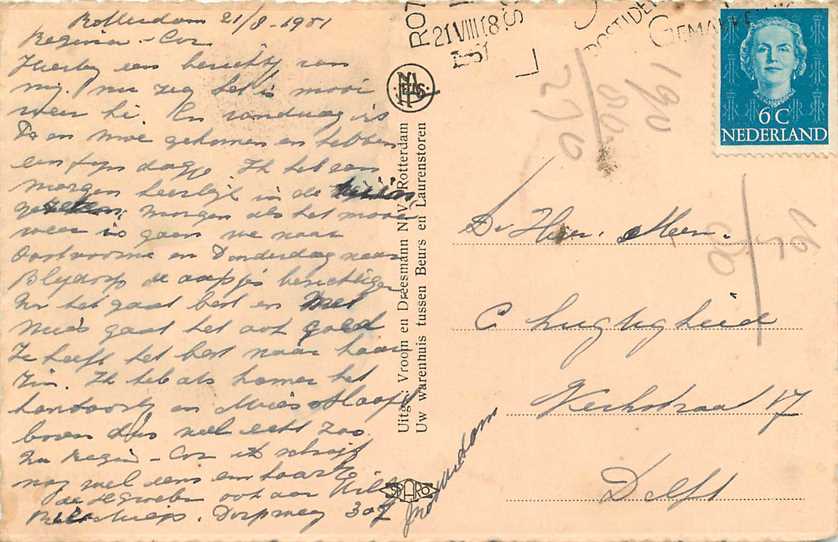 Rotterdam 21/8-1951
Regina - Cor
Hierbij een berichtje van
mij. nu zeg het is mooi
weer hé. En vandaag is
en moe gekomen en hebben
een fijn dagje. Ik heb van
morgen heerlijk in de
morgen als het mooi
weer is gaan we naar
Oostvoorne en Donderdag naar
Blijdorp de aapjes bezichtigen
het gaat best en Met
Mies gaat het ook goed
Ze heeft het best naar haar
zin. Ik heb als kamer het
en Mies slaapt
boven dus wel echt
Regin - Cor ik schrijf
nog wel eens een kaartje
de groeten ook aan
Dorpsweg 30
ROT
21 VIII 18
51
POSTIDE
GEMAK
NEDERLAND
6 C
190
270
Uitg.: Vroom en Dreesmann N.V. Rotterdam
Uw warenhuis tussen Beurs en Laurenstoren
SPARO
D. Heer. Meer.
C
Kerkstraat 17
Delft